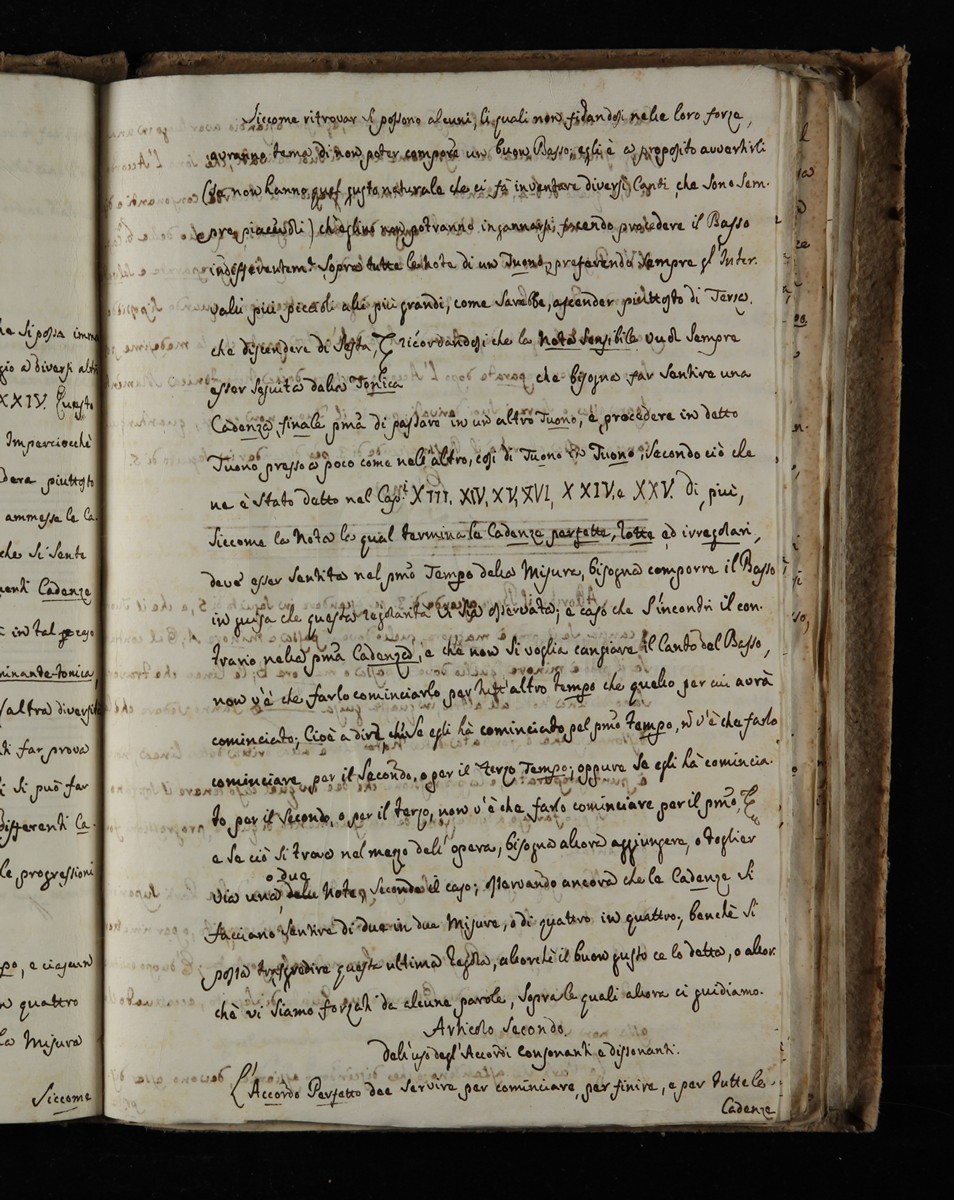 he si possa imm
gio a diversi altr
XXIV. Questo
Imperciocchè
dere piuttosto
ammesse le Ca
che si sente
Cadenze
è in tal
minante-tonica,
altra diversit
di far prova
si può far
differenti Ca-
le progressioni
po, e ciascun
n quattro
La Misura
Siccome
Siccome ritrovar si possono alcuni, li quali non fidandosi nelle loro forze,
avranno tema di non poter comporre un buon Basso, egli è a proposito avvertirli
(se non hanno quel gusto naturale che ci fà inventare diversi Canti, che sono sem-
pre piacevoli) ch'eglino non potranno ingannarsi facendo procedere il Basso
indifferentemte. Sopra tutte le note di un Tuono, preferendo sempre gl'Inter-
valli più piccioli alli più grandi, come sarebbe, ascender piuttosto di Terza,
che discendere di Sesta, &c ricordandosi che la Nota Sensibile vuol sempre
esser seguita dalla Tonica che bisogna far sentire una
Cadenza finale pma di passare in un altro Tuono, e procedere in detto
Tuono presso a poco come nell'altro, così di Tuono in Tuono, secondo ciò che
ne è stato detto nel Capi. XIII, XIV, XV, XVI, XXIV, e XXV. di più,
siccome la Nota la qual termina le Cadenze perfette, rotte ed irregolari,
deve esser sentita nel pmo Tempo della Misura, bisogna comporre il Basso
in guisa che questa regolarità vi sia osservata; e caso che s'incontri il con-
trario nella pma Cadenza, e che non si voglia cangiare il Canto del Basso,
non v'è che farlo cominciarlo per tutt'altro tempo che quello per cui avrà
cominciato; Cioè a dire che se egli hà cominciato pel pmo tempo, n v'è che farlo
cominciare per il Secondo, o per il terzo Tempo; oppure se egli hà comincia-
to per il Secondo, o per il terzo, non v'è che farlo cominciare per il pmo, &c
e se ciò si trova nel mezzo dell'opera, bisogna allora aggiungere, o toglier
o due
via una delle Note, secondo il caso; osservando ancora che le Cadenze si
facciano sentire di due in due Misure, o di quattro in quattro; benchè si
possa trasgredire questa ultima regola, allorchè il buon gusto ce lo detta, o allor-
chè vi siamo forzati da alcune parole, sopra le quali allora ci guidiamo.
Articolo Secondo.
Dell'uso degl'Accordi Consonanti e dissonanti.
L'Accordo Perfetto dee servire per cominciare, per finire, e per tutte le
Cadenze